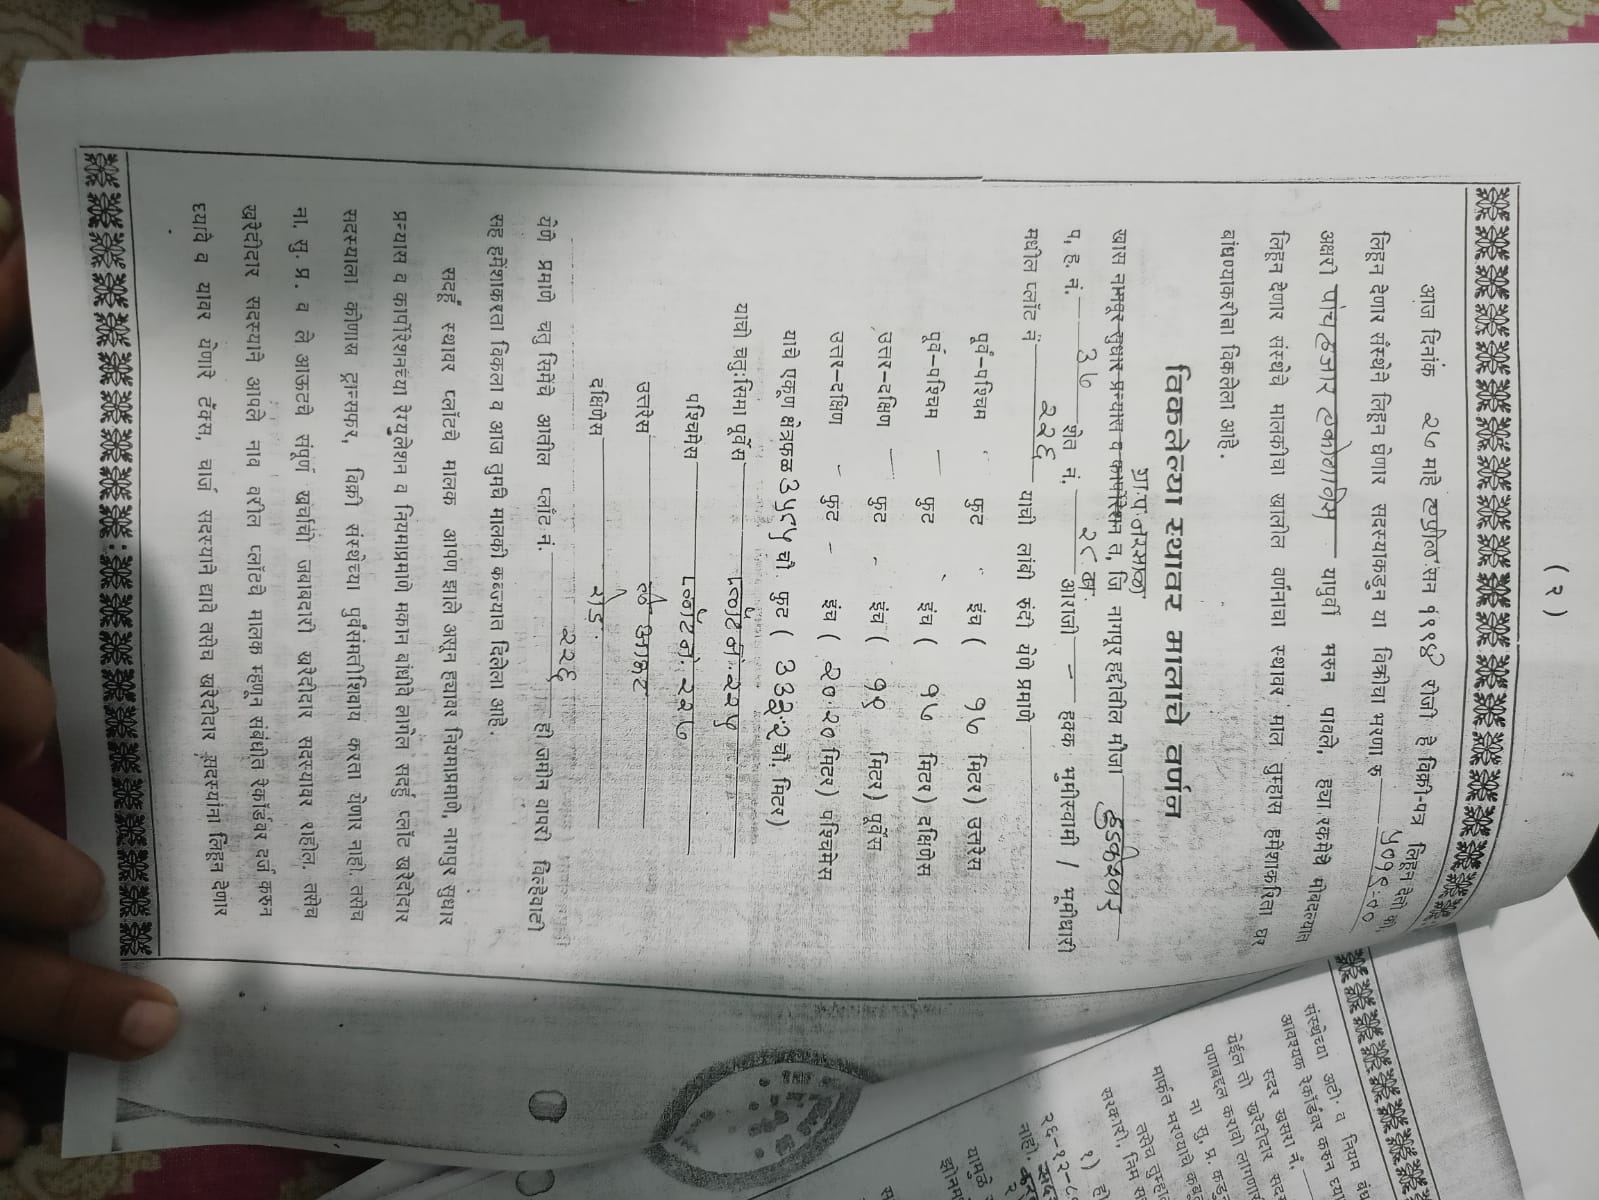 ( २ )
आज दिनांक २७ माहे एप्रील सन १९९४ रोजी हे विक्री-पत्र लिहून देतो की,
लिहून देणार संस्थेने लिहून घेणार सदस्याकडुन या विक्रीचा भरणा रु ५०१९-००
अक्षरी पांच हजार एकोणविस यापुर्वी भरुन पावले, ह्या रकमेचे मोबदल्यात
लिहून देणार संस्थेचे मालकीचा खालील वर्णनाचा स्थावर माल तुम्हास हमेंशाकरिता घर
बांधण्याकरीता विकलेला आहे.
विकलेल्या स्थावर मालाचे वर्णन
ग्रा. पं. नरसाळा
खास नागपूर सुधार प्रन्यास व कार्पोरेशन त, जि नागपूर हद्दीतील मौजा हुडकेश्वर
प, ह. नं. ३७ शेत नं. २८ ब. आराजी — हक्क भुमीस्वामी / भूमीधारी
मधील प्लॉट नं २२६ याची लांबी रुंदी येणे प्रमाणे
पूर्व-पश्चिम फुट इंच ( १७ मिटर) उत्तरेस
पूर्व-पश्चिम — फुट इंच ( १७ मिटर) दक्षिणेस
उत्तर-दक्षिण — फुट - इंच ( १९ मिटर) पूर्वेस
उत्तर-दक्षिण - फुट - इंच ( २०.२० मिटर) पश्चिमेस
याचे एकूण क्षेत्रफळ ३५८५ चौ. फुट ( ३३३.२ चौ. मिटर)
याची चतुःसिमा पूर्वेस प्लॉट नं. २२५
पश्चिमेस प्लॉट नं. २२७
उत्तरेस ले आऊट
दक्षिणेस रोड.
येणे प्रमाणे चतु सिमेंचे आतील प्लॉट नं. २२६ ही जमीन वापरी विल्हेवाटी
सह हमेंशाकरता विकला व आज तुमचे मालकी कब्ज्यात दिलेला आहे.
सदर्हू स्थावर प्लॉटचे मालक आपण झाले असून ह्यावर नियमाप्रमाणे, नागपुर सुधार
प्रन्यास व कार्पोरेशनच्या रेग्युलेशन व नियमाप्रमाणे मकान बांधीवे लागेल सदर्हु प्लॉट खरेदीदार
सदस्याला कोणास ट्रान्सफर, विक्री संस्थेच्या पुर्वसंमतीशिवाय करता येणार नाही. तसेच
ना. सु. प्र. व ले आऊटचे संपूर्ण खर्चाची जबाबदारी खरेदीदार सदस्यावर राहील. तसेच
खरेदीदार सदस्याने आपले नाव वरील प्लॉटचे मालक म्हणून संबंधीत रेकॉर्डवर दर्ज करुन
घ्यावे व यावर येणारे टॅक्स, चार्ज सदस्याने द्यावे तसेच खरेदीदार सदस्यांना लिहून देणार
संस्थेच्या अटी व नियम बंध
आवश्यक रेकॉर्डवर करुन घ्या
सदर खसरा नं.
येईल तो खरेदीदार सदस
पणाबद्दल करावी लागणार
ना सु. प्र. कडुन
मार्फत भरण्याचे कबूल
तसेच तुम्हा
सरकारी, निम स
१) ही
२६-१२-८
नाही. सदर
यामुळे
झोनम